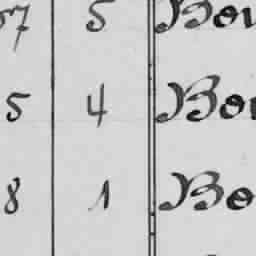 57 5 Bou
5 4 Bou
8 1 Bo